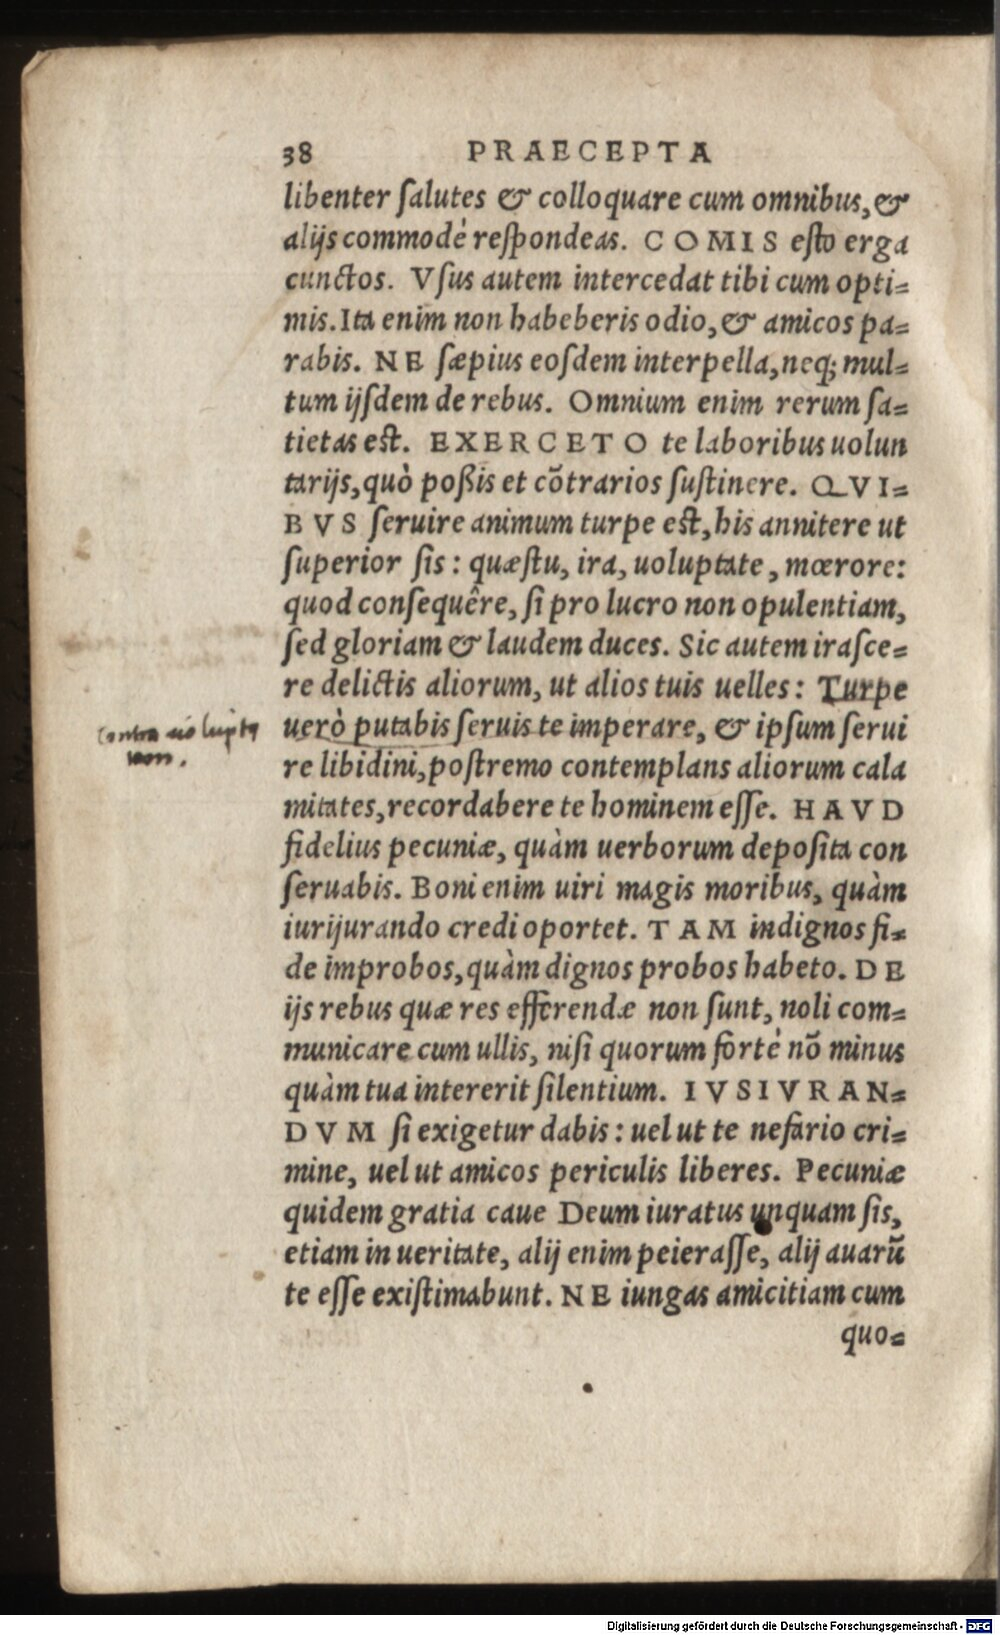 38 PRAECEPTA
libenter ſalutes & colloquare cum omnibus, &
alijs commodè reſpondeas. COMIS eſto erga
cunctos. Vſus autem intercedat tibi cum opti=
mis. Ita enim non habeberis odio, & amicos pa=
rabis. NE ſæpius eoſdem interpella, neq; mul=
tum ijſdem de rebus. Omnium enim rerum ſa=
tietas eſt. EXERCETO te laboribus uolun
tarijs, quò poßis et cõtrarios ſuſtinere. QVI=
BVS ſeruire animum turpe eſt, his annitere ut
ſuperior ſis: quæſtu, ira, uoluptate, mœrore:
quod conſequêre, ſi pro lucro non opulentiam,
ſed gloriam & laudem duces. Sic autem iraſce=
re delictis aliorum, ut alios tuis uelles: Turpe
uerò putabis ſeruis te imperare, & ipſum ſerui
re libidini, poſtremo contemplans aliorum cala
mitates, recordabere te hominem eſſe. HAVD
fidelius pecuniæ, quàm uerborum depoſita con
ſeruabis. Boni enim uiri magis moribus, quàm
iurijurando credi oportet. TAM indignos fi=
de improbos, quàm dignos probos habeto. DE
ijs rebus quæ res efferendæ non ſunt, noli com=
municare cum ullis, niſi quorum fortè nõ minus
quàm tua intererit ſilentium. IVSIVRAN=
DVM ſi exigetur dabis: uel ut te nefario cri=
mine, uel ut amicos periculis liberes. Pecuniæ
quidem gratia caue Deum iuratus unquam ſis,
etiam in ueritate, alij enim peieraſſe, alij auarũ
te eſſe exiſtimabunt. NE iungas amicitiam cum
quo=
contra uolupta
tem.
Digitalisierung gefördert durch die Deutsche Forschungsgemeinschaft - DFG